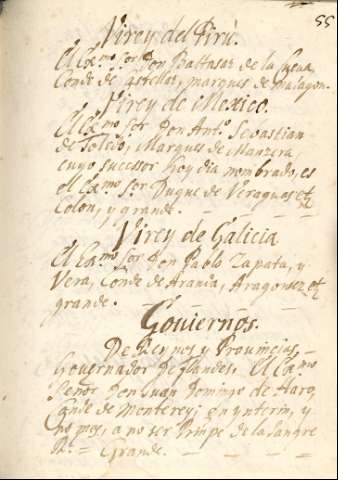 55
Virey del Pirú.
El Exmo. Sor. Don Baltasar de la Cueva,
Conde de Castellar, marques de malagon.
Virey de Mexico.
El Exmo. Sor Don Anto. Sebastian
de Toledo, Marques de Manzera,
cuyo sucessor hoy dia nombrado, es
el Exmo. Sor Duque de Veraguas,
Colon, y grande.
Virey de Galicia
El Exmo. Sor Don Pablo Zapata, y
Vera, Conde de Arania, Aragones
grande.
Gouiernos.
De Reynos y Prouincias,
Gouernador de flandes. El Exmo
Señor Don Juan Domingo de Haro,
Conde de Monterey; en ynterin, y
no mas, a no ser Prinpe de la Sangre
Rl. = Grande.